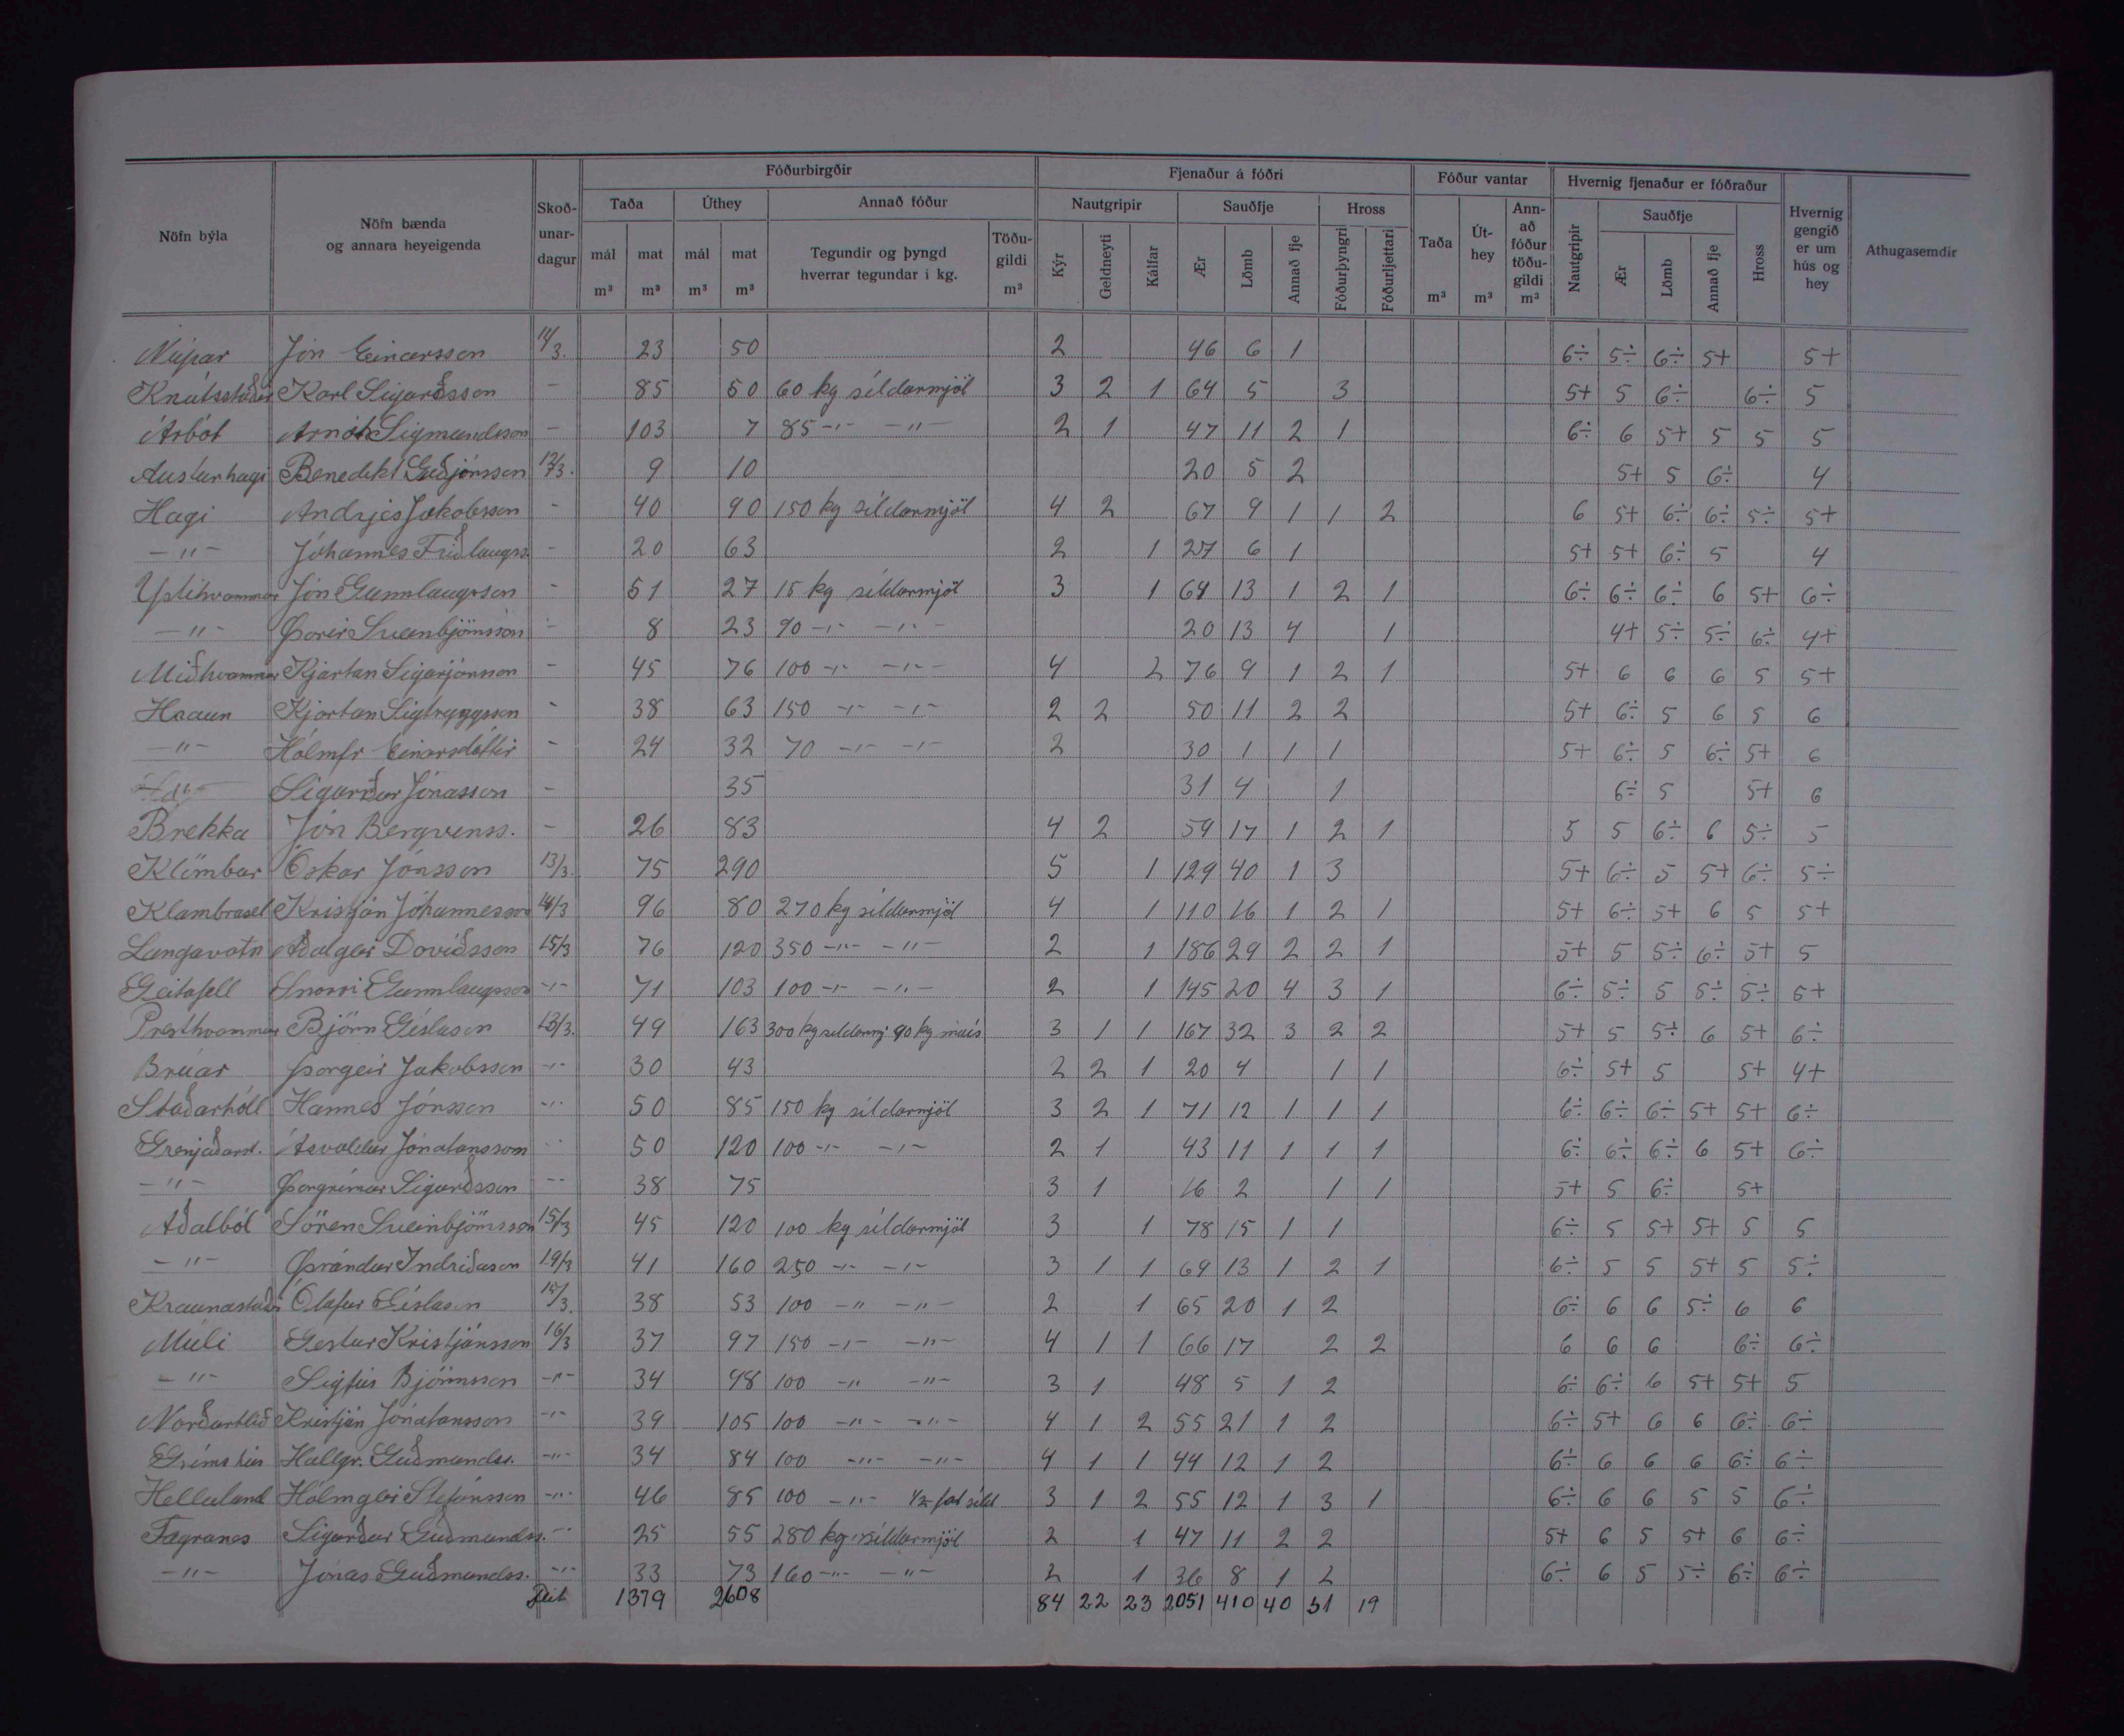 Nöfn býla | Nöfn bænda og annara heyeigenda | Skoð-unar-dagur | Fóðurbirgðir | Fjenaður á fóðri | Fóður vantar | Hvernig fjenaður er fóðraður | Hvernig gengið er um hús og hey | Athugasemdir
Taða | Úthey | Annað fóður | Nautgripir | Sauðfje | Hross | Taða m³ | Út-hey m³ | Ann-að fóður töðu-gildi m³ | Nautgripir | Sauðfje | Hross
mál m³ | mat m³ | mál m³ | mat m³ | Tegundir og þyngd hverrar tegundar í kg. | Töðu-gildi m³ | Kýr | Geldneyti | Kálfar | Ær | Lömb | Annað fje | Fóðurþyngri | Fóðurljettari | Ær | Lömb | Annað fje
Núpar Jón Einarsson 11/3. 23 50 2 46 6 1 6÷ 5÷ 6÷ 5+ 5+
Knútsstaðir Karl Sigurðsson - 85 50 60 kg síldarmjöl 3 2 1 64 5 3 5+ 5 6÷ 6÷ 5
Árbót Arnót Sigmundsson - 103 7 85 -"- -"- 2 1 47 11 2 1 6÷ 6 5+ 5 5 5
Austurhagi Benedikt Guðjónsson 12/3. 9 10 20 5 2 5+ 5 6÷ 4
Hagi Andrjes Jakobsson - 40 90 150 kg síldarmjöl 4 2 67 9 1 1 2 6 5+ 6÷ 6÷ 5÷ 5+
-"- Jóhannes Friðlaugss. - 20 63 2 1 27 6 1 5+ 5+ 6÷ 5 4
Ystihvammur Jón Gunnlaugsson - 51 27 15 kg síldarmjöl 3 1 64 13 1 2 1 6÷ 6÷ 6÷ 6 5+ 6÷
-"- Þorir Sveinbjörnsson - 8 23 90 -"- -"- 20 13 4 1 4+ 5÷ 5÷ 6÷ 4+
Miðhvammur Kjartan Sigurjónsson - 45 76 100 -"- -"- 4 2 76 9 1 2 1 5+ 6 6 6 5 5+
Hraun Kjartan Sigtryggsson - 38 63 150 -"- -"- 2 2 50 11 2 2 5+ 6÷ 5 6 5 6
-"- Hólmfr Einarsdóttir - 24 32 70 -"- -"- 2 30 1 1 1 5+ 6÷ 5 6÷ 5+ 6
-"- Sigurður Jónasson - 35 31 4 1 6÷ 5 5+ 6
Brekka Jón Bergvinss. - 26 83 4 2 59 17 1 2 1 5 5 6÷ 6 5÷ 5
Klömbur Óskar Jónsson 13/3. 75 290 5 1 129 40 1 3 5+ 6÷ 5 5+ 6÷ 5÷
Klambrasel Kristján Jóhannesson 14/3 96 80 270 kg síldarmjöl 4 1 110 16 1 2 1 5+ 6÷ 5+ 6 5 5+
Langavatn Aðalgeir Davíðsson 15/3 76 120 350 -"- -"- 2 1 186 29 2 2 1 5+ 5 5÷ 6÷ 5+ 5
Geitafell Snorri Gunnlaugsson -"- 71 103 100 -"- -"- 2 1 145 20 4 3 1 6÷ 5÷ 5 5÷ 5÷ 5+
Presthvammur Björn Gíslason 13/3. 49 163 300 kg síldarmj 90 kg maís 3 1 1 167 32 3 2 2 5+ 5 5÷ 6 5+ 6÷
Brúar Þorgeir Jakobsson -"- 30 43 2 2 1 20 4 1 1 6÷ 5+ 5 5+ 4+
Staðarhóll Hannes Jónsson -"- 50 85 150 kg síldarmjöl 3 2 1 71 12 1 1 1 6÷ 6÷ 6÷ 5+ 5+ 6÷
Grenjaðarst. Ásvaldur Jónatansson -"- 50 120 100 -"- -"- 2 1 43 11 1 1 1 6÷ 6÷ 6÷ 6 5+ 6÷
-"- Þorgrímur Sigurðsson -"- 38 75 3 1 16 2 1 1 5+ 5 6÷ 5+
Aðalból Sören Sveinbjörnsson 15/3 45 120 100 kg síldarmjöl 3 1 78 15 1 1 6÷ 5 5+ 5+ 5 5
-"- Þrándur Indriðason 19/3 41 160 250 -"- -"- 3 1 1 69 13 1 2 1 6÷ 5 5 5+ 5 5÷
Kraunastaðir Ólafur Gíslason 15/3. 38 53 100 -"- -"- 2 1 65 20 1 2 6÷ 6 6 5÷ 6 6
Múli Gestur Kristjánsson 16/3 37 97 150 -"- -"- 4 1 1 66 17 2 2 6 6 6 6÷ 6÷
-"- Sigfús Björnsson -"- 34 48 100 -"- -"- 3 1 48 5 1 2 6÷ 6÷ 6 5+ 5+ 5
Norðurhlíð Kristján Jónatansson -"- 39 105 100 -"- -"- 4 1 2 55 21 1 2 6÷ 5+ 6 6 6÷ 6÷
Grímshús Hallgr. Guðmundss. -"- 34 84 100 -"- -"- 4 1 1 44 12 1 2 6÷ 6 6 6 6÷ 6÷
Helluland Hólmgeir Stefánsson -"- 46 85 100 -"- ½ fat síld 3 1 2 55 12 1 3 1 6÷ 6 6 5 5 6÷
Fagranes Sigurður Guðmundss. -"- 25 55 280 kg síldarmjöl 2 1 47 11 2 2 5+ 6 5 5+ 6 6÷
-"- Jónas Guðmundss. -"- 33 73 160 -"- -"- 2 1 36 8 1 2 6÷ 6 5 5÷ 6÷ 6÷
Flut 1379 2608 84 22 23 2051 410 40 51 19